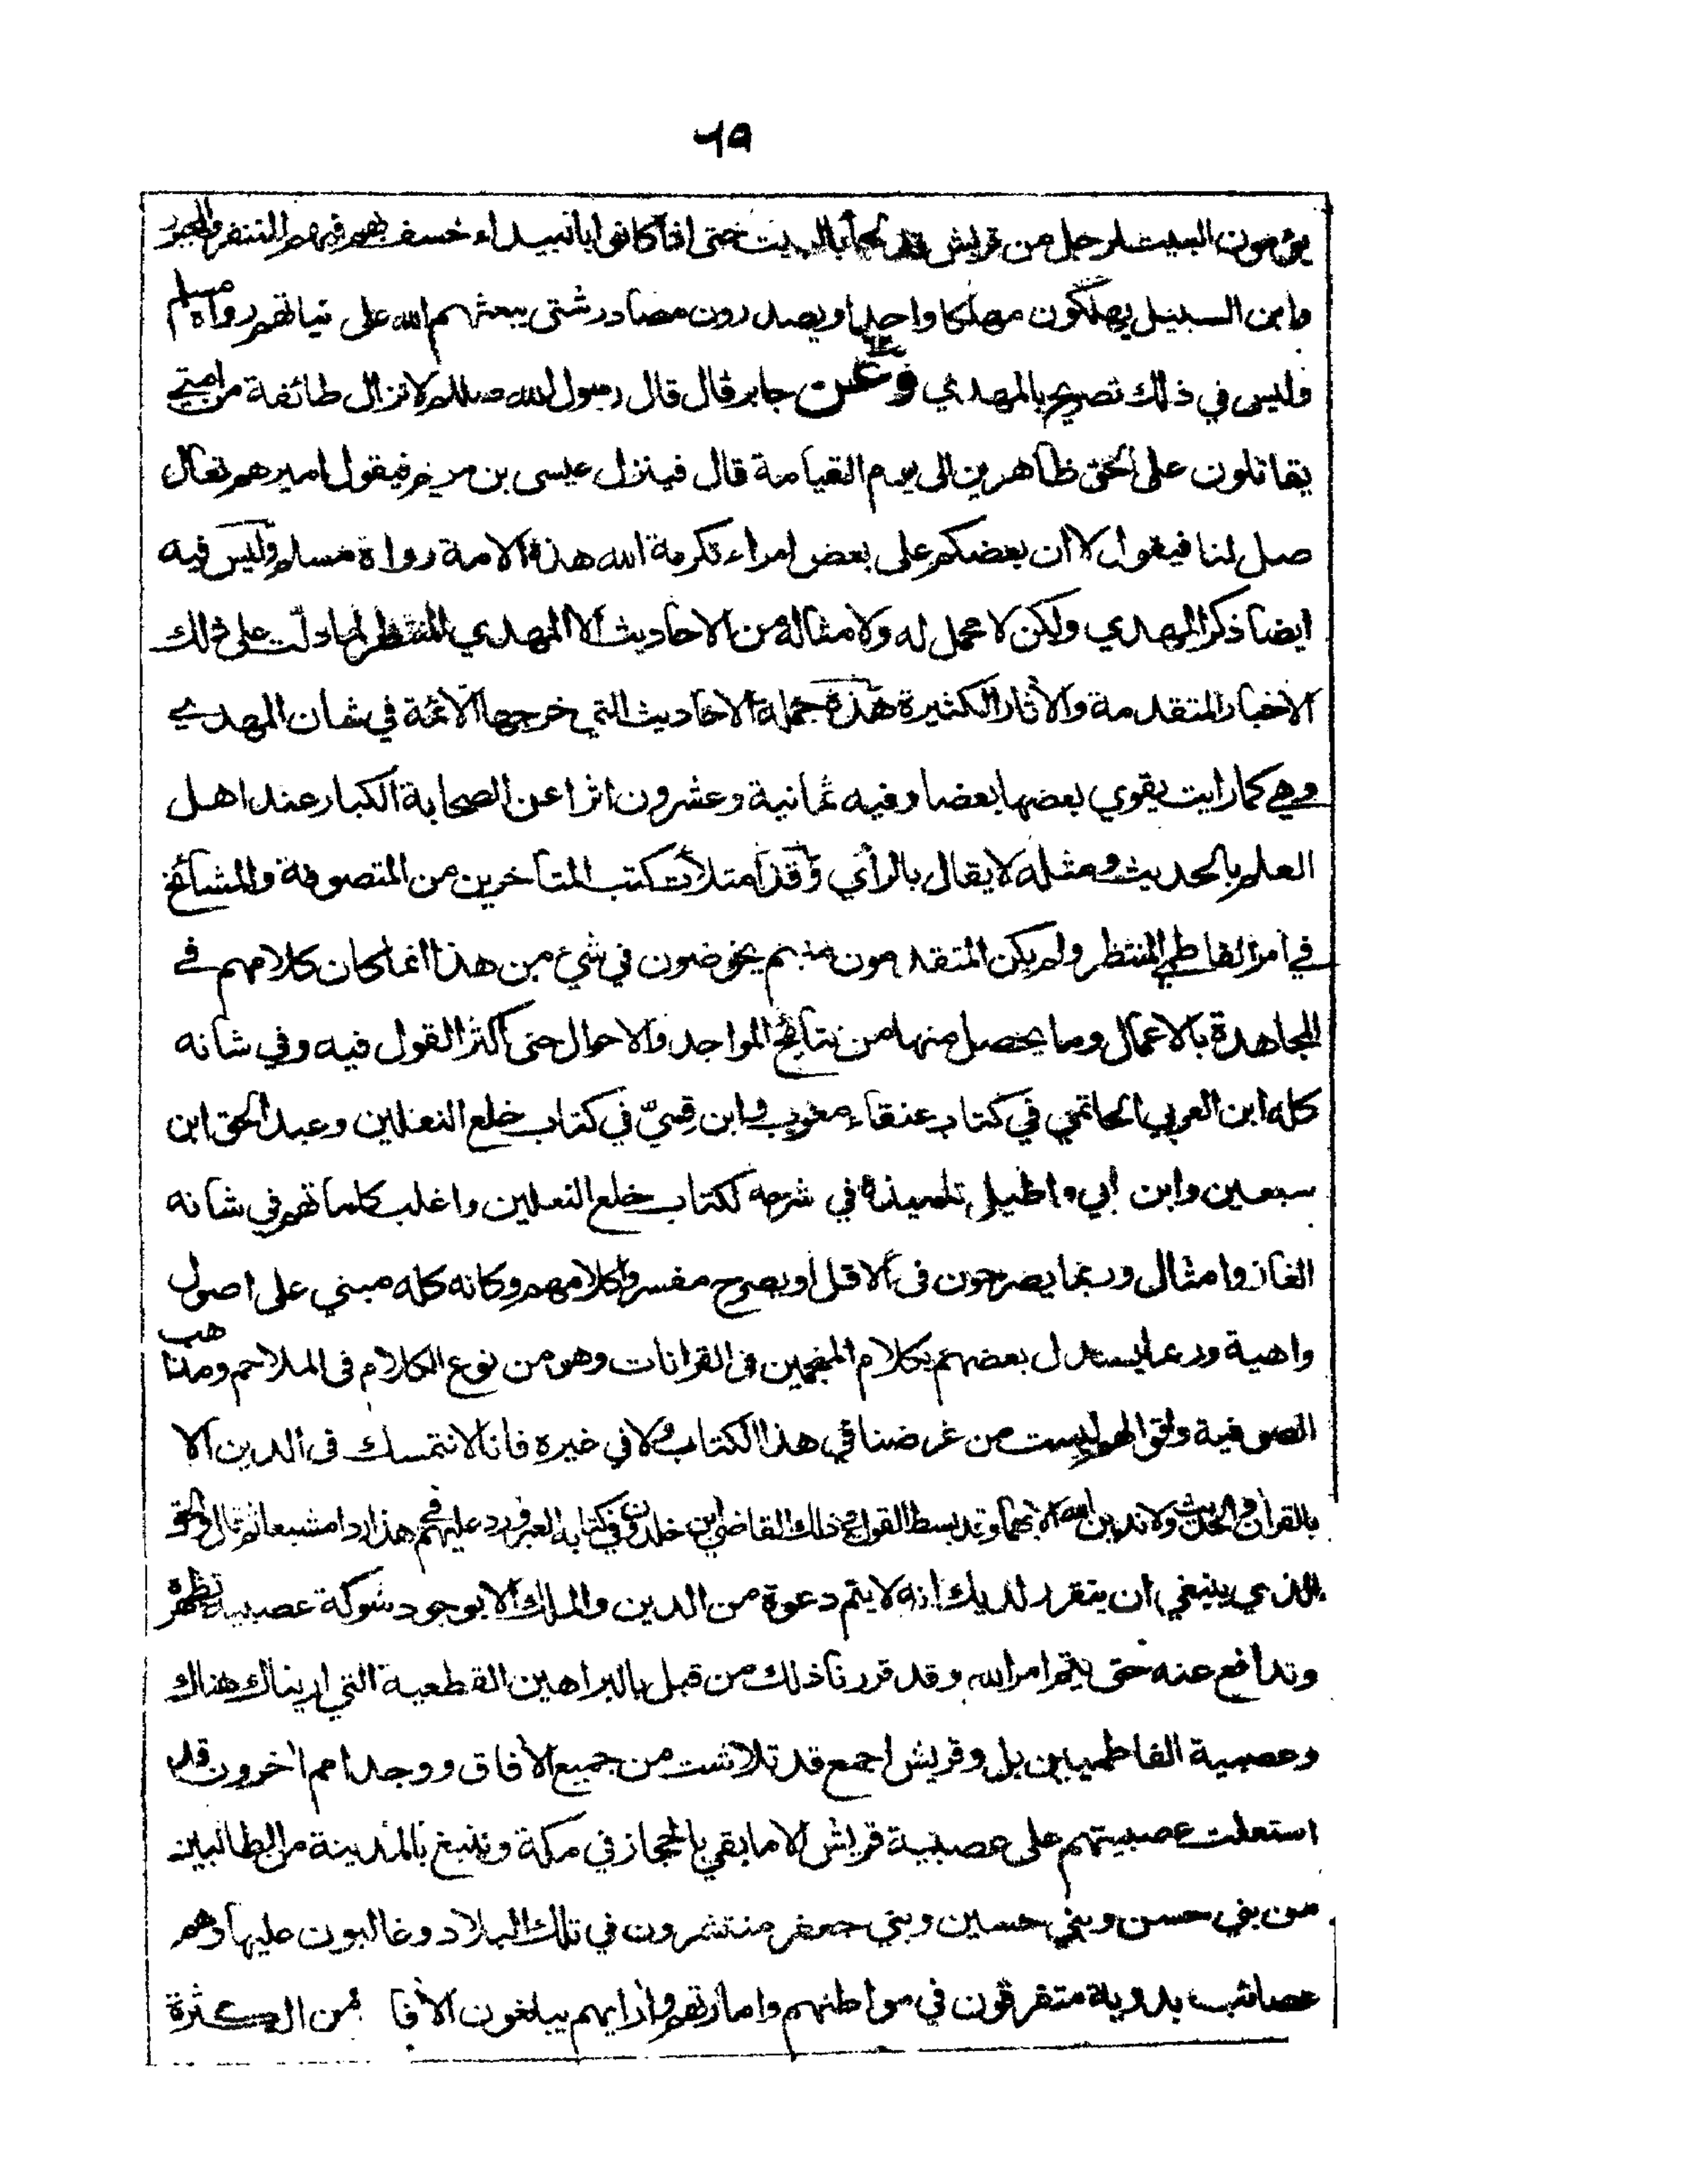 ٦٩
يؤمون البيت لرجل من قريش قد لجأ بالبيت حتى اذا كانوا بالبيداء خسف بهم فيهم المستنفر والمجبور
وابن السبيل يهلكون مهلكا واحدا ويصدرون مصادر شتى يبعثهم الله على نياتهم رواه مسلم
وليس في ذلك تصريح بالمهدي وعن جابر قال قال رسول الله صللم لا تزال طائفة من امتي
يقاتلون على الحق ظاهرين الى يوم القيامة قال فينزل عيسى بن مريم فيقول اميرهم تعال
صل لنا فيقول لا ان بعضكم على بعض امراء تكرمة الله هذه الامة رواه مسلم وليس فيه
ايضا ذكر المهدي ولكن لا محمل له ولامثاله من الاحاديث الا المهدي المنتظر لما دلت على ذلك
الاخبار المتقدمة والآثار الكثيرة هذه جملة الاحاديث التي خرجها الائمة في شان المهدي
وهي كما رايت يقوي بعضها بعضا وفيه ثمانية وعشرون اثرا عن الصحابة الكبار عند اهل
العلم بالحديث ومثله لا يقال بالرأي وقد امتلأت كتب المتاخرين من المتصوفة والمشائخ
في امر الفاطمي المنتظر ولم يكن المتقدمون منهم يخوضون في شئ من هذا انما كان كلامهم في
المجاهدة بالاعمال وما يحصل منها من نتائج المواجد والاحوال حتى اكثر القول فيه وفي شانه
كله ابن العربي الحاتمي في كتاب عنقاء مغرب وابن قسيّ في كتاب خلع النعلين وعبد الحق ابن
سبعين وابن ابي واطيل تلميذه في شرحه لكتاب خلع النعلين واغلب كلماتهم في شانه
الغاز وامثال وربما يصرحون في الاقل او يصرح مفسروا كلامهم وكانه كله مبني على اصول
واهية وربما يستدل بعضهم بكلام المنجمين في القرانات وهو من نوع الكلام في الملاحم ومذاهب
الصوفية واقوالهم ليست من غرضنا في هذا الكتاب ولا في غيره فانا لا نتمسك في الدين الا
بالقرآن والحديث ولا ندين الله الا بهما وقد بسط القول في ذلك القاضي ابن خلدون في كتابه العبر ورد عليهم في هذا ردا مشبعا ثم قال والحق
الذي ينبغي ان يتقرر لديك انه لا يتم دعوة من الدين والملك الا بوجود شوكة عصبية تظهره
وتدافع عنه حتى يتم امر الله وقد قررنا ذلك من قبل بالبراهين القطعية التي اريناك هناك
وعصبية الفاطميين بل وقريش اجمع قد تلاشت من جميع الآفاق ووجد امم اخرون قد
استعلت عصبيتهم على عصبية قريش الا ما بقي بالحجاز في مكة وينبع بالمدينة من الطالبيين
من بني حسن وبني حسين وبني جعفر منتشرون في تلك البلاد وغالبون عليها وهم
عصائب بدوية متفرقون في مواطنهم وامارتهم وآرايهم يبلغون الآفا من الكثرة